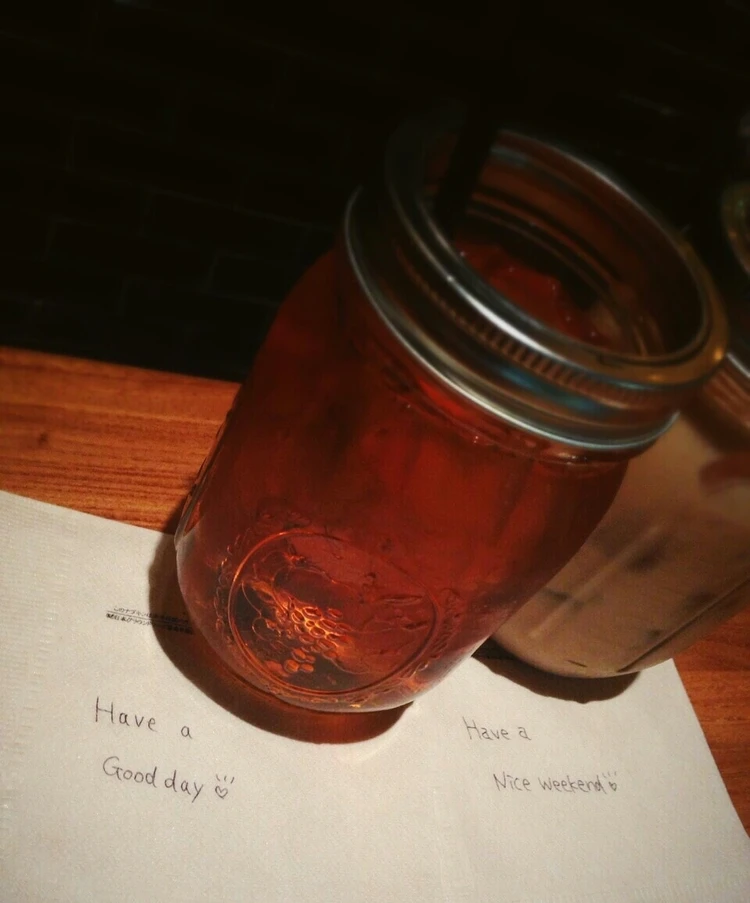 Have a
Good day
Have a
Nice weekend